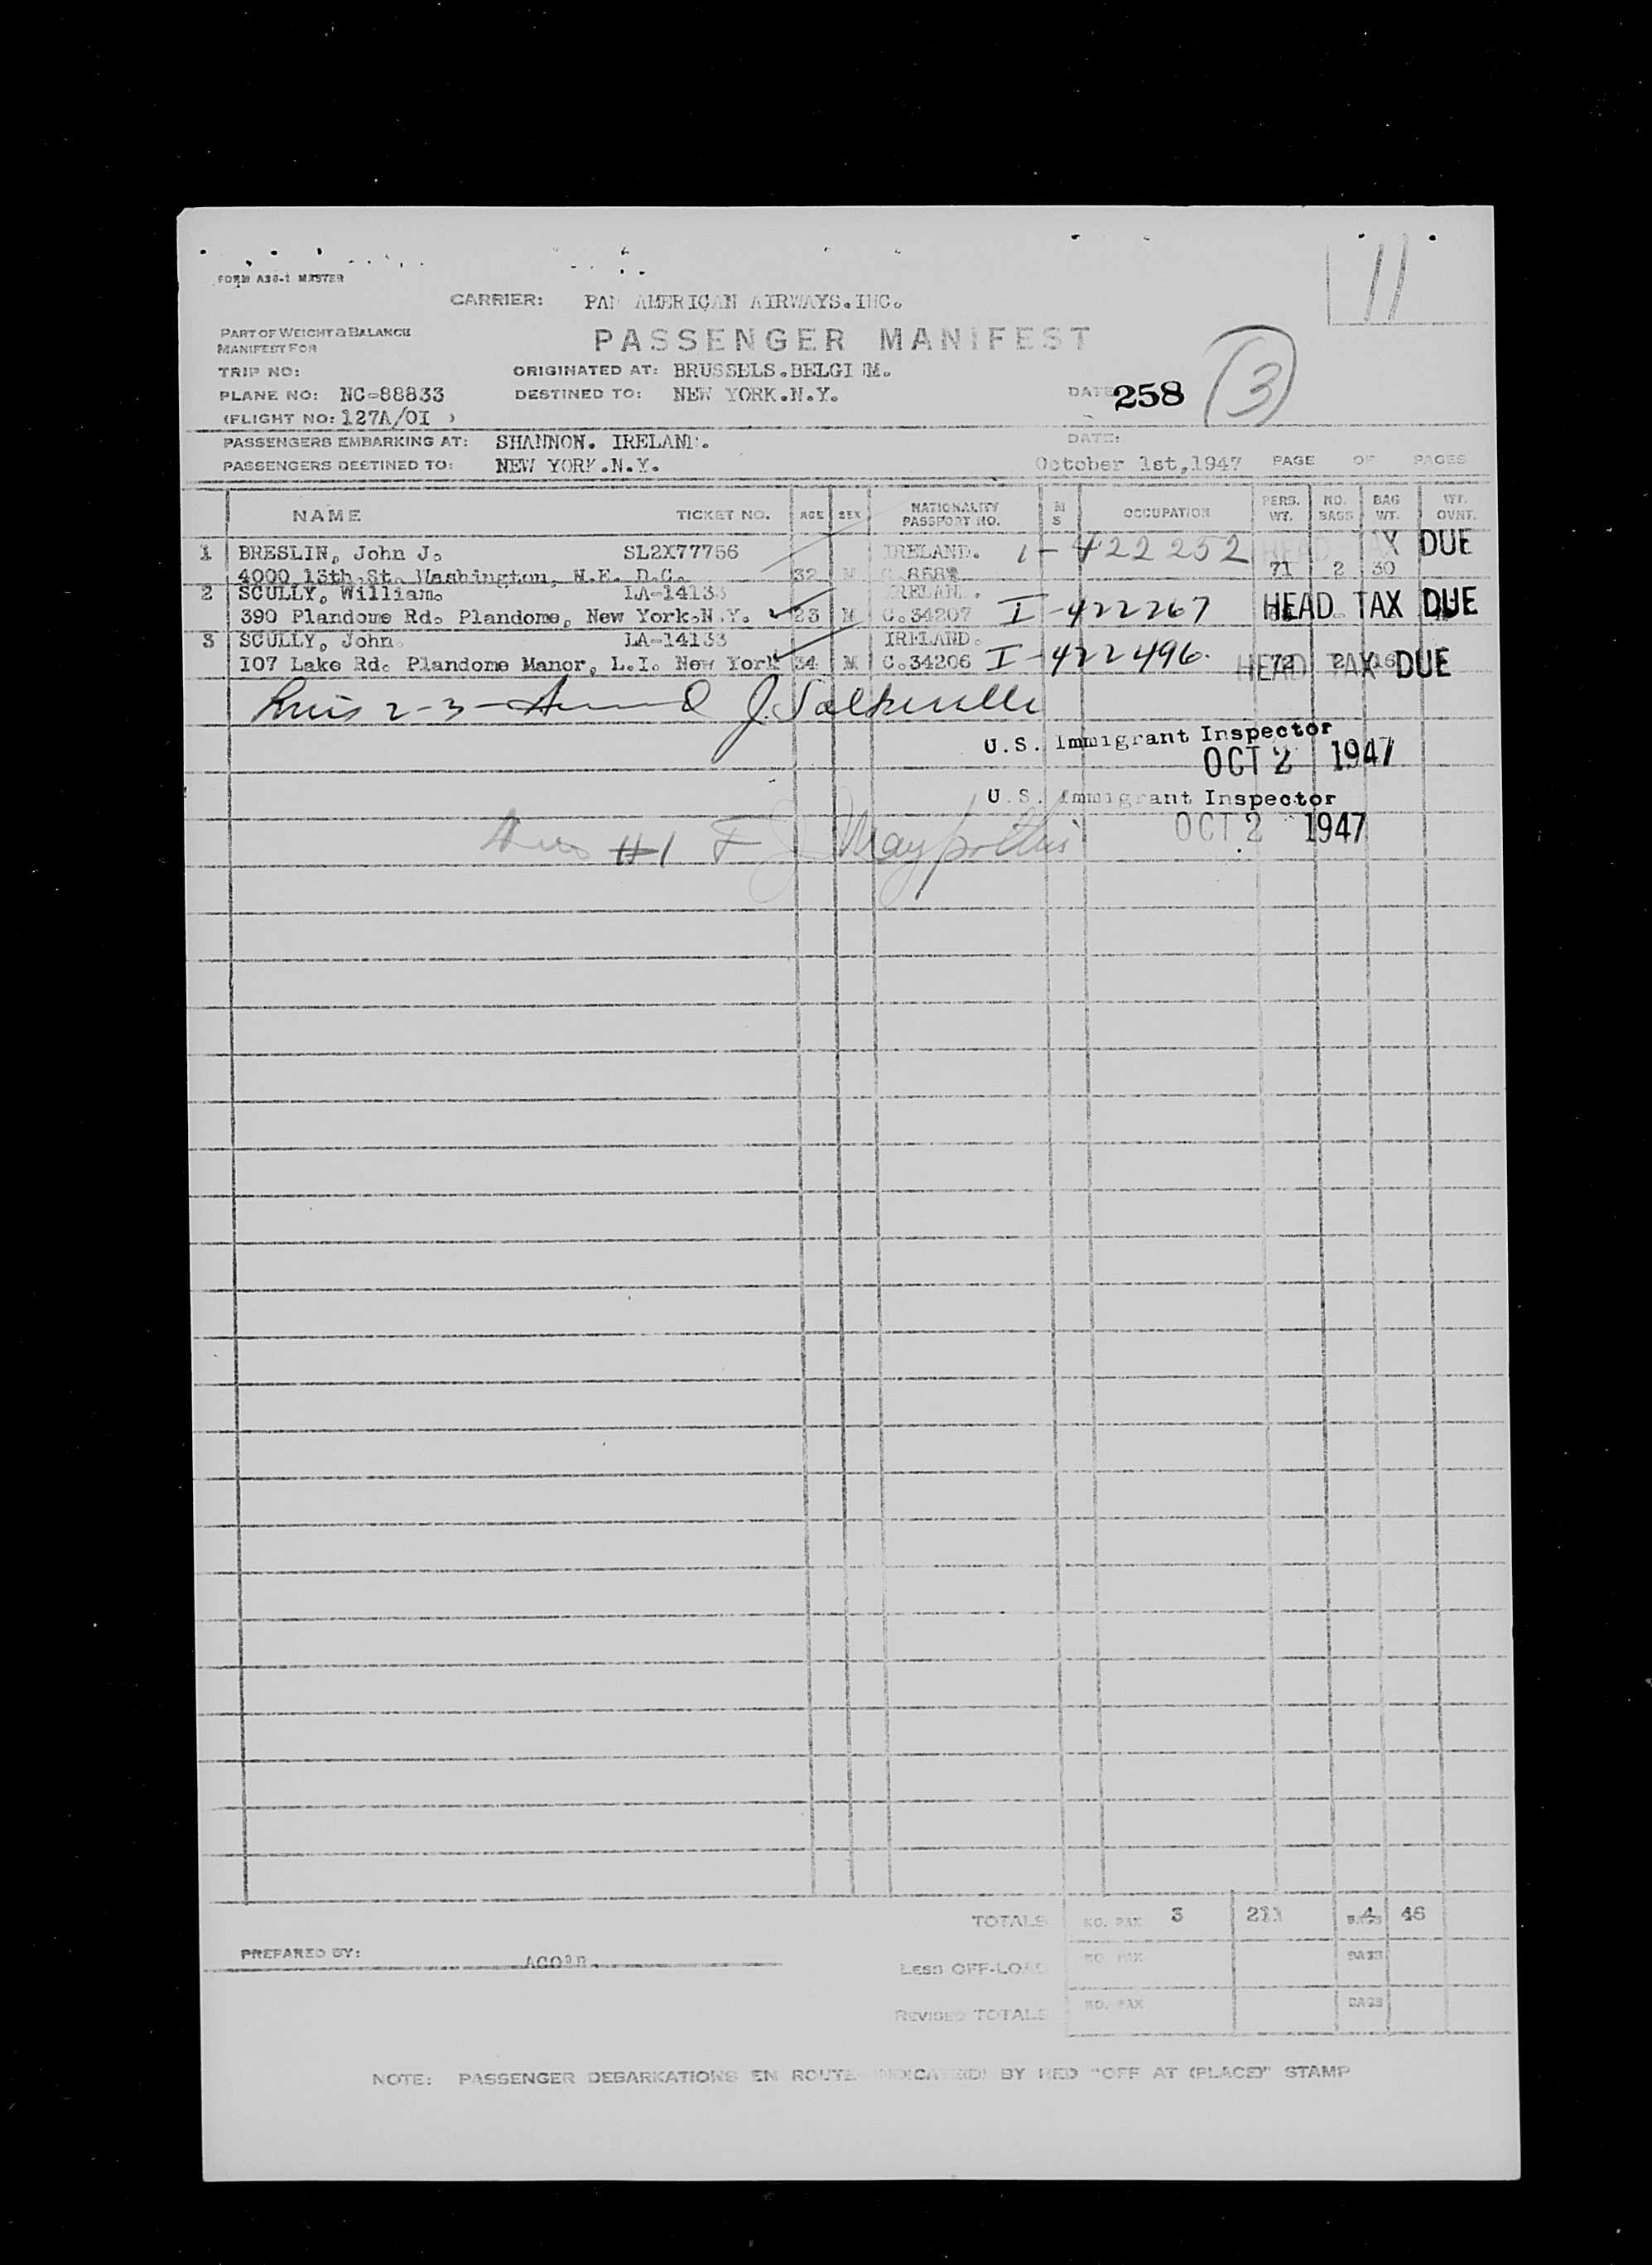 11
FORM A36-1 MASTER
CARRIER: PAN AMERICAN AIRWAYS.INC.
PART OF WEIGHT & BALANCE
MANIFEST FOR
PASSENGER MANIFEST
TRIP NO: ORIGINATED AT: BRUSSELS.BELGI M.
PLANE NO: NC-88833 DESTINED TO: NEW YORK.N.Y. DATE 258 3
(FLIGHT NO: 127A/OI )
PASSENGERS EMBARKING AT: SHANNON. IRELAND. DATE:
PASSENGERS DESTINED TO: NEW YORK.N.Y. October 1st,1947 PAGE OF PAGES
NAME TICKET NO. AGE SEX NATIONALITY PASSPORT NO. M S OCCUPATION PERS. WT. NO. BAGS BAG WT. WT. OVNT.
1 BRESLIN, John J. SL2X77756 IRELAND. 1-422252 HEAD TAX DUE
4000 13th St. Washington, N.E. D.C. 32 M 71 2 30
2 SCULLY, William. LA-14133 IRELAND.
390 Plandome Rd. Plandome, New York.N.Y. 23 M C.34207 I-422267 HEAD TAX DUE
3 SCULLY, John. LA-14133 IRELAND.
107 Lake Rd. Plandome Manor, L.I. New York 34 M C.34206 I-422496. 72 2 16 HEAD TAX DUE
2-3- J.
U.S. Immigrant Inspector
OCT 2 1947
U.S. Immigrant Inspector
#1 F J OCT 2 1947
TOTALS NO. PAX 3 211 BAGS 4 46
PREPARED BY:
LESS OFF-LOAD NO. PAX BAGS
REVISED TOTALS NO. PAX BAGS
NOTE: PASSENGER DEBARKATIONS EN ROUTE INDICATED BY RED "OFF AT (PLACE)" STAMP